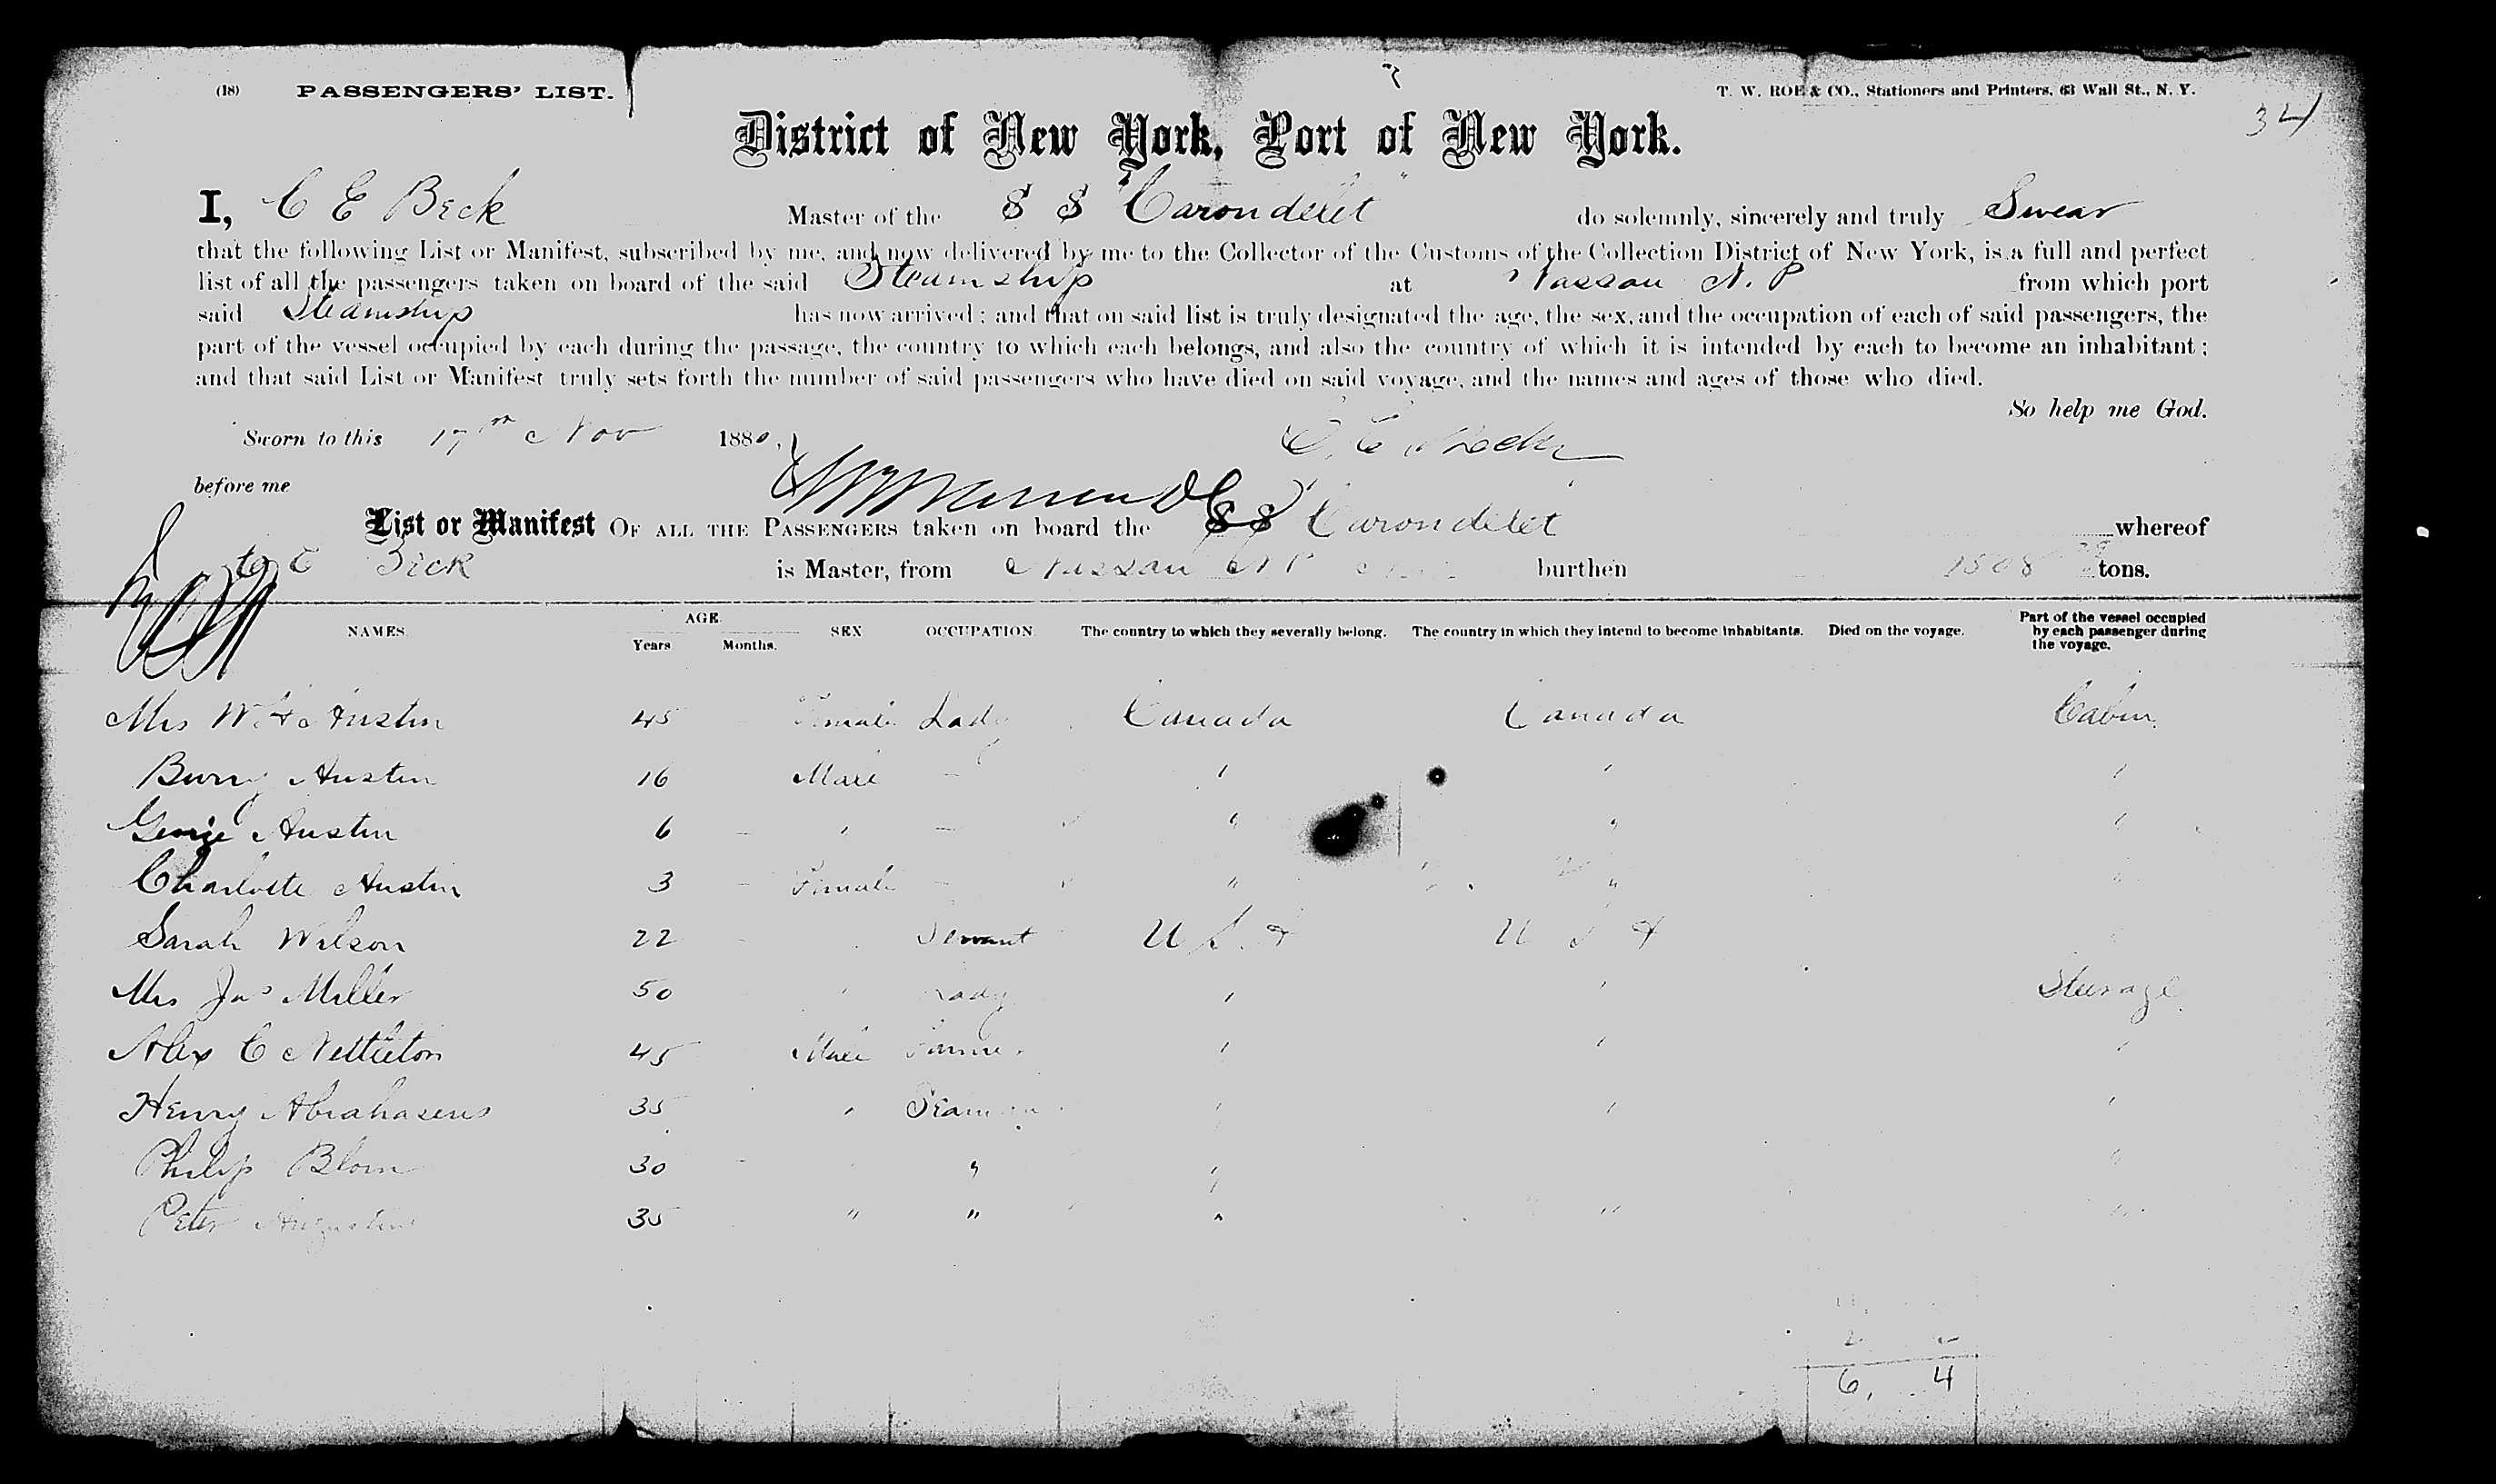 (18) PASSENGERS' LIST. T. W. ROE & CO., Stationers and Printers, 63 Wall St., N. Y.
34
District of New York, Port of New York.
I, C E Beck Master of the S S "Carondelet" do solemnly, sincerely and truly Swear
that the following List or Manifest, subscribed by me, and now delivered by me to the Collector of the Customs of the Collection District of New York, is a full and perfect
list of all the passengers taken on board of the said Steamship at Nassau N. P from which port
said Steamship has now arrived; and that on said list is truly designated the age, the sex, and the occupation of each of said passengers, the
part of the vessel occupied by each during the passage, the country to which each belongs, and also the country of which it is intended by each to become an inhabitant;
and that said List or Manifest truly sets forth the number of said passengers who have died on said voyage, and the names and ages of those who died.
So help me God.
Sworn to this 17th Nov 1880,
before me
List or Manifest OF ALL THE PASSENGERS taken on board the SS Carondelet whereof
Beck is Master, from Nassau N P burthen 1508 tons.
NAMES. AGE. Years. Months. SEX. OCCUPATION. The country to which they severally belong. The country in which they intend to become inhabitants. Died on the voyage. Part of the vessel occupied by each passenger during the voyage.
Mrs W. H Austin 45 Female Lady Canada Canada Cabin
Burry Austin 16 Male - " " "
George Austin 6 - " - " " "
Charlotte Austin 3 - Female - " " "
Sarah Wilson 22 - Servant U S. A U S A "
Mrs Jas Miller 50 " Lady " " Steerage
Alex C Nettleton 45 Male Farmer " " "
Henry Abrahasens 35 " Seaman " " "
Philip Blom 30 - " " "
Peter Augustine 35 " " " " "
6. 4